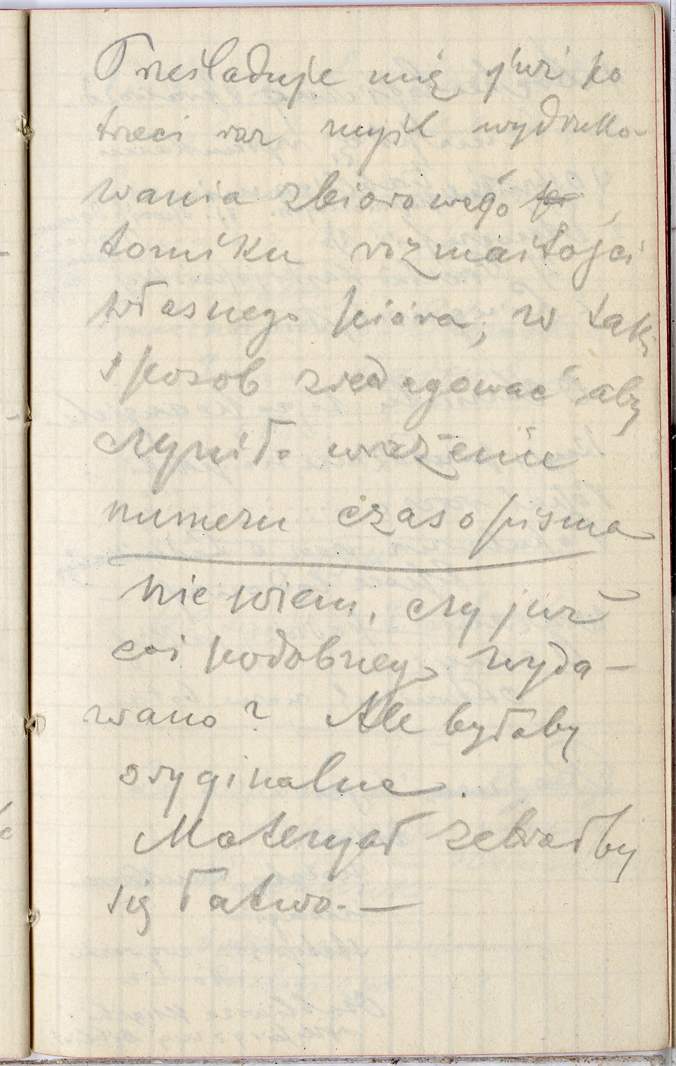 Prześladuje mię już po
trzeci raz myśl wydruko-
wania zbiorowego
tomiku rozmaitości
własnego pióra, w taki
sposób zredagować aby
czyniło wrażenie
numeru czasopisma
Nie wiem, czy już
coś podobnego wyda-
wano? Ale byłoby
oryginalne.
Materyał zebrałby
się łatwo.—